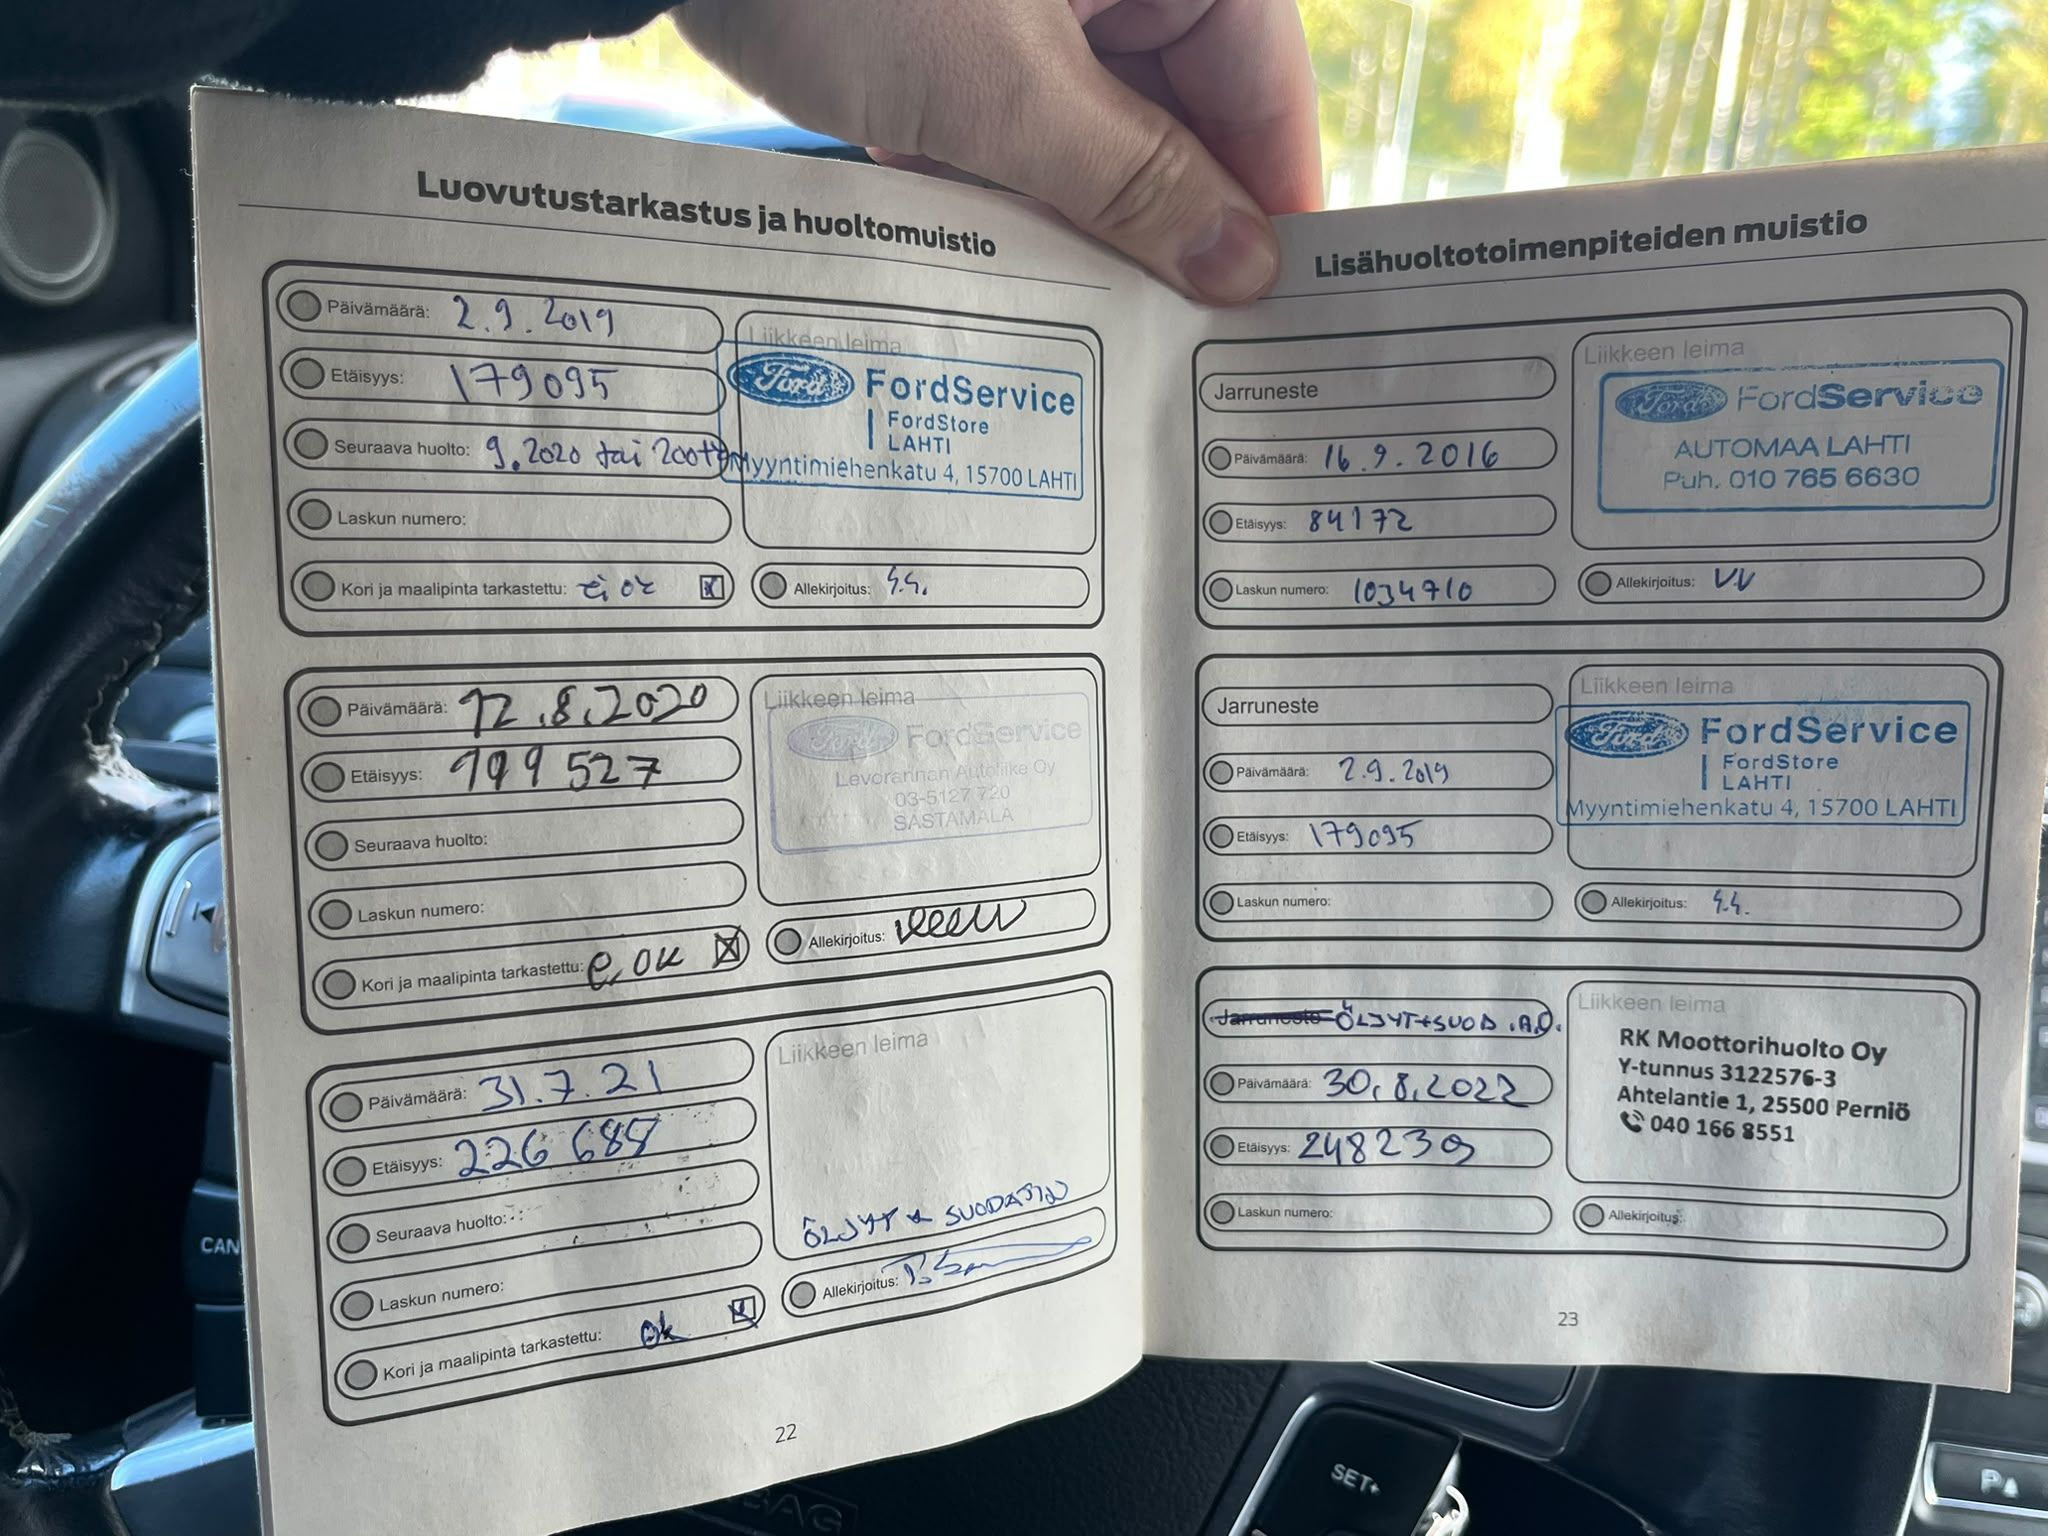 Luovutustarkastus ja huoltomuistio
Päivämäärä: 2.9.2019
Etäisyys: 179095
Seuraava huolto: 9.2020 tai 200tt
Laskun numero:
Kori ja maalipinta tarkastettu: ei ok
Liikkeen leima
Ford FordService
FordStore
LAHTI
Myyntimiehenkatu 4, 15700 LAHTI
Allekirjoitus: S.S.
Päivämäärä: 12.8.2020
Etäisyys: 199 527
Seuraava huolto:
Laskun numero:
Kori ja maalipinta tarkastettu: e, ok
Liikkeen leima
Ford FordService
Levorannan Autoliike Oy
03-5127 720
SASTAMALA
Allekirjoitus:
Päivämäärä: 31.7.21
Etäisyys: 226 688
Seuraava huolto:
Laskun numero:
Kori ja maalipinta tarkastettu: ok
Liikkeen leima
ÖLJYT +
Allekirjoitus:
22
Lisähuoltotoimenpiteiden muistio
Jarruneste
Päivämäärä: 16.9.2016
Etäisyys: 84172
Laskun numero: 1034710
Liikkeen leima
Ford FordService
AUTOMAA LAHTI
Puh. 010 765 6630
Allekirjoitus: VV
Jarruneste
Päivämäärä: 2.9.2019
Etäisyys: 179095
Laskun numero:
Liikkeen leima
Ford FordService
FordStore
LAHTI
Myyntimiehenkatu 4, 15700 LAHTI
Allekirjoitus: S.S.
Jarruneste ÖLJYT+SUOD.
Päivämäärä: 30.8.2022
Etäisyys: 248239
Laskun numero:
Liikkeen leima
RK Moottorihuolto Oy
Y-tunnus 3122576-3
Ahtelantie 1, 25500 Perniö
040 166 8551
Allekirjoitus:
23
CAN
SET+
BAG
P